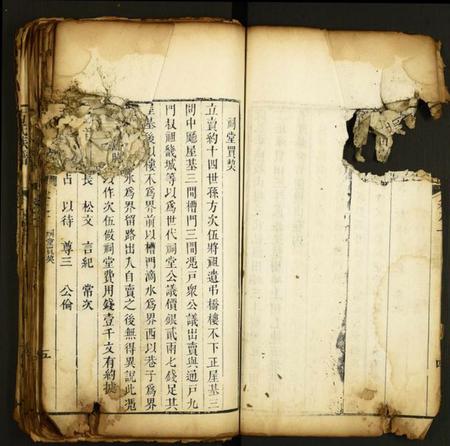 祠堂買契
立賣約十四世孫方次伍將祖遺弔橋樓不下正屋基三
間中廳屋基三間槽門三間凴戸衆公議出賣與通戸九
門叔祖畿城等以爲世代祠堂公議價銀貳兩七錢足其
屋基後以樓不爲界前以槽門滴水爲界西以巷子爲界
水爲界留路出入自賣之後無得異説此凴
以作次伍做祠堂費用錢壹千文有約據
長 松文 言紀 常次
占 以待 尊三 公倫
祠堂買契
五